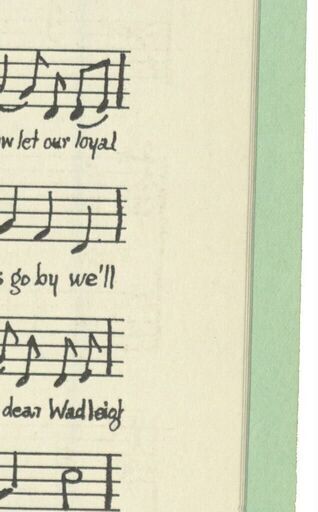 w let our loyal
s go by we'll
dear Wadleigh